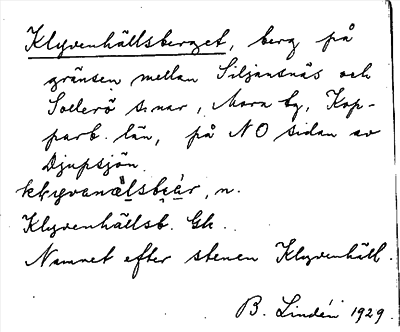 Klyvenhällsberget, berg på
gränsen mellan Siljansnäs och
Sollerö s:nar, Mora tg, Kop-
parb. län, på NO sidan av
Djupsjön.
klyvanälsbær, n.
Klyvenhällsb. Gk.
Namnet efter stenen Klyvenhäll.
B. Lindén 1929.